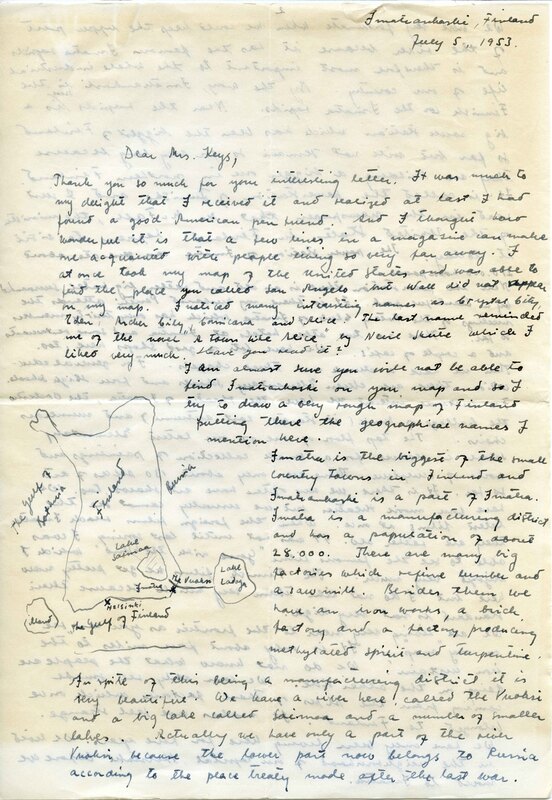 Imatrankoski, Finland
July 5, 1953.
Dear Mrs. Keys,
Thank you so much for your interesting letter. It was much to
my delight that I received it and realized at last I had
found a good American pen friend. And I thought how
wonderful it is that a few lines in a magazine can make
me acquainted with people living so very far away. I
at once took my map of the United States and was able to
find the place you called San Angelo but Wall did not appear
on my map. I noticed many interesting names as Crystal City,
Eden, Archer City, Corsicana and Alice. The last name reminded
me of the novel A Town like Alice by Nevil Shute which I
liked very much. Have you read it?
I am almost sure you will not be able to
find Imatrankoski on your map and so I
try to draw a very rough map of Finland
putting there the geographical names I
mention here.
Imatra is the biggest of the small
country towns in Finland and
Imatrankoski is a part of Imatra.
Imatra is a manufacturing district
and has a population of about
28,000. There are many big
factories which refine lumber and
a saw mill. Besides them we
have an iron works, a brick
factory and a factory producing
methylated spirit and turpentine.
The Gulf of
Bothnia
Finland
Russia
Lake
Saimaa
Imatra
The Vuoksi
Lake
Ladoga
Helsinki
Åland
The Gulf of Finland
In spite of this being a manufacturing district it is
very beautiful. We have a river here called the Vuoksi
and a big lake called Saimaa and a number of smaller
lakes. Actually we have only a part of the river
Vuoksi because the lower part now belongs to Russia
according to the peace treaty made after the last war.